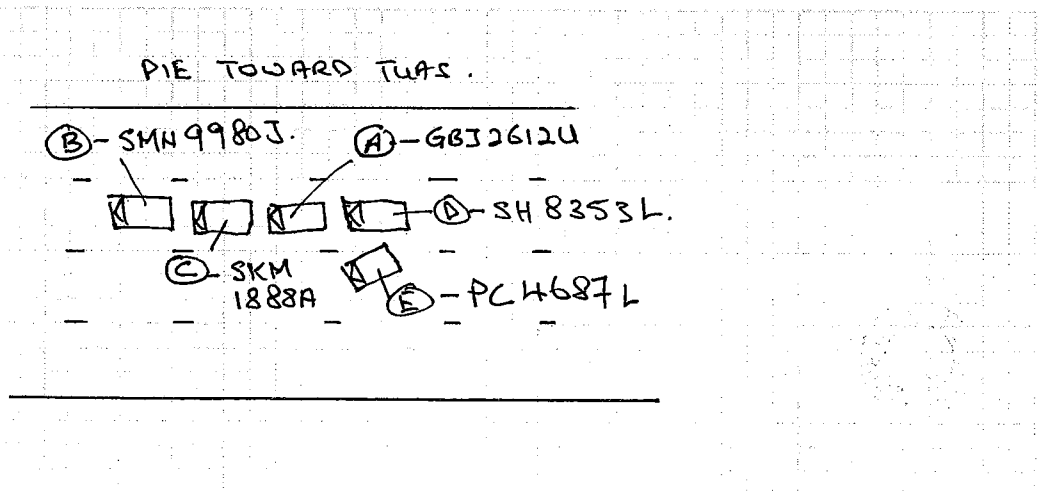 PIE TOWARD TUAS.
B - SMN9980J.
A - GBJ2612U
D - SH8353L.
C - SKM
1888A
E - PC4687L